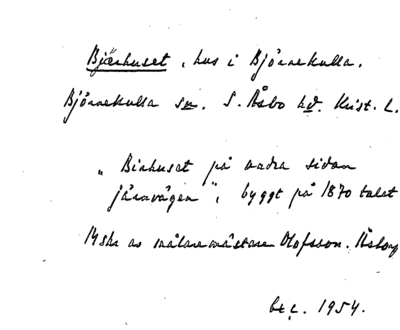 Bjärhuset, hus i Bjärnekulla.
Bjärnekulla sn. S. Åsbo hd. Krist. L.
"Bärhuset på andra sidan
järnvägen", byggt på 1870 talet
av målaremästare Olofsson.
1954.